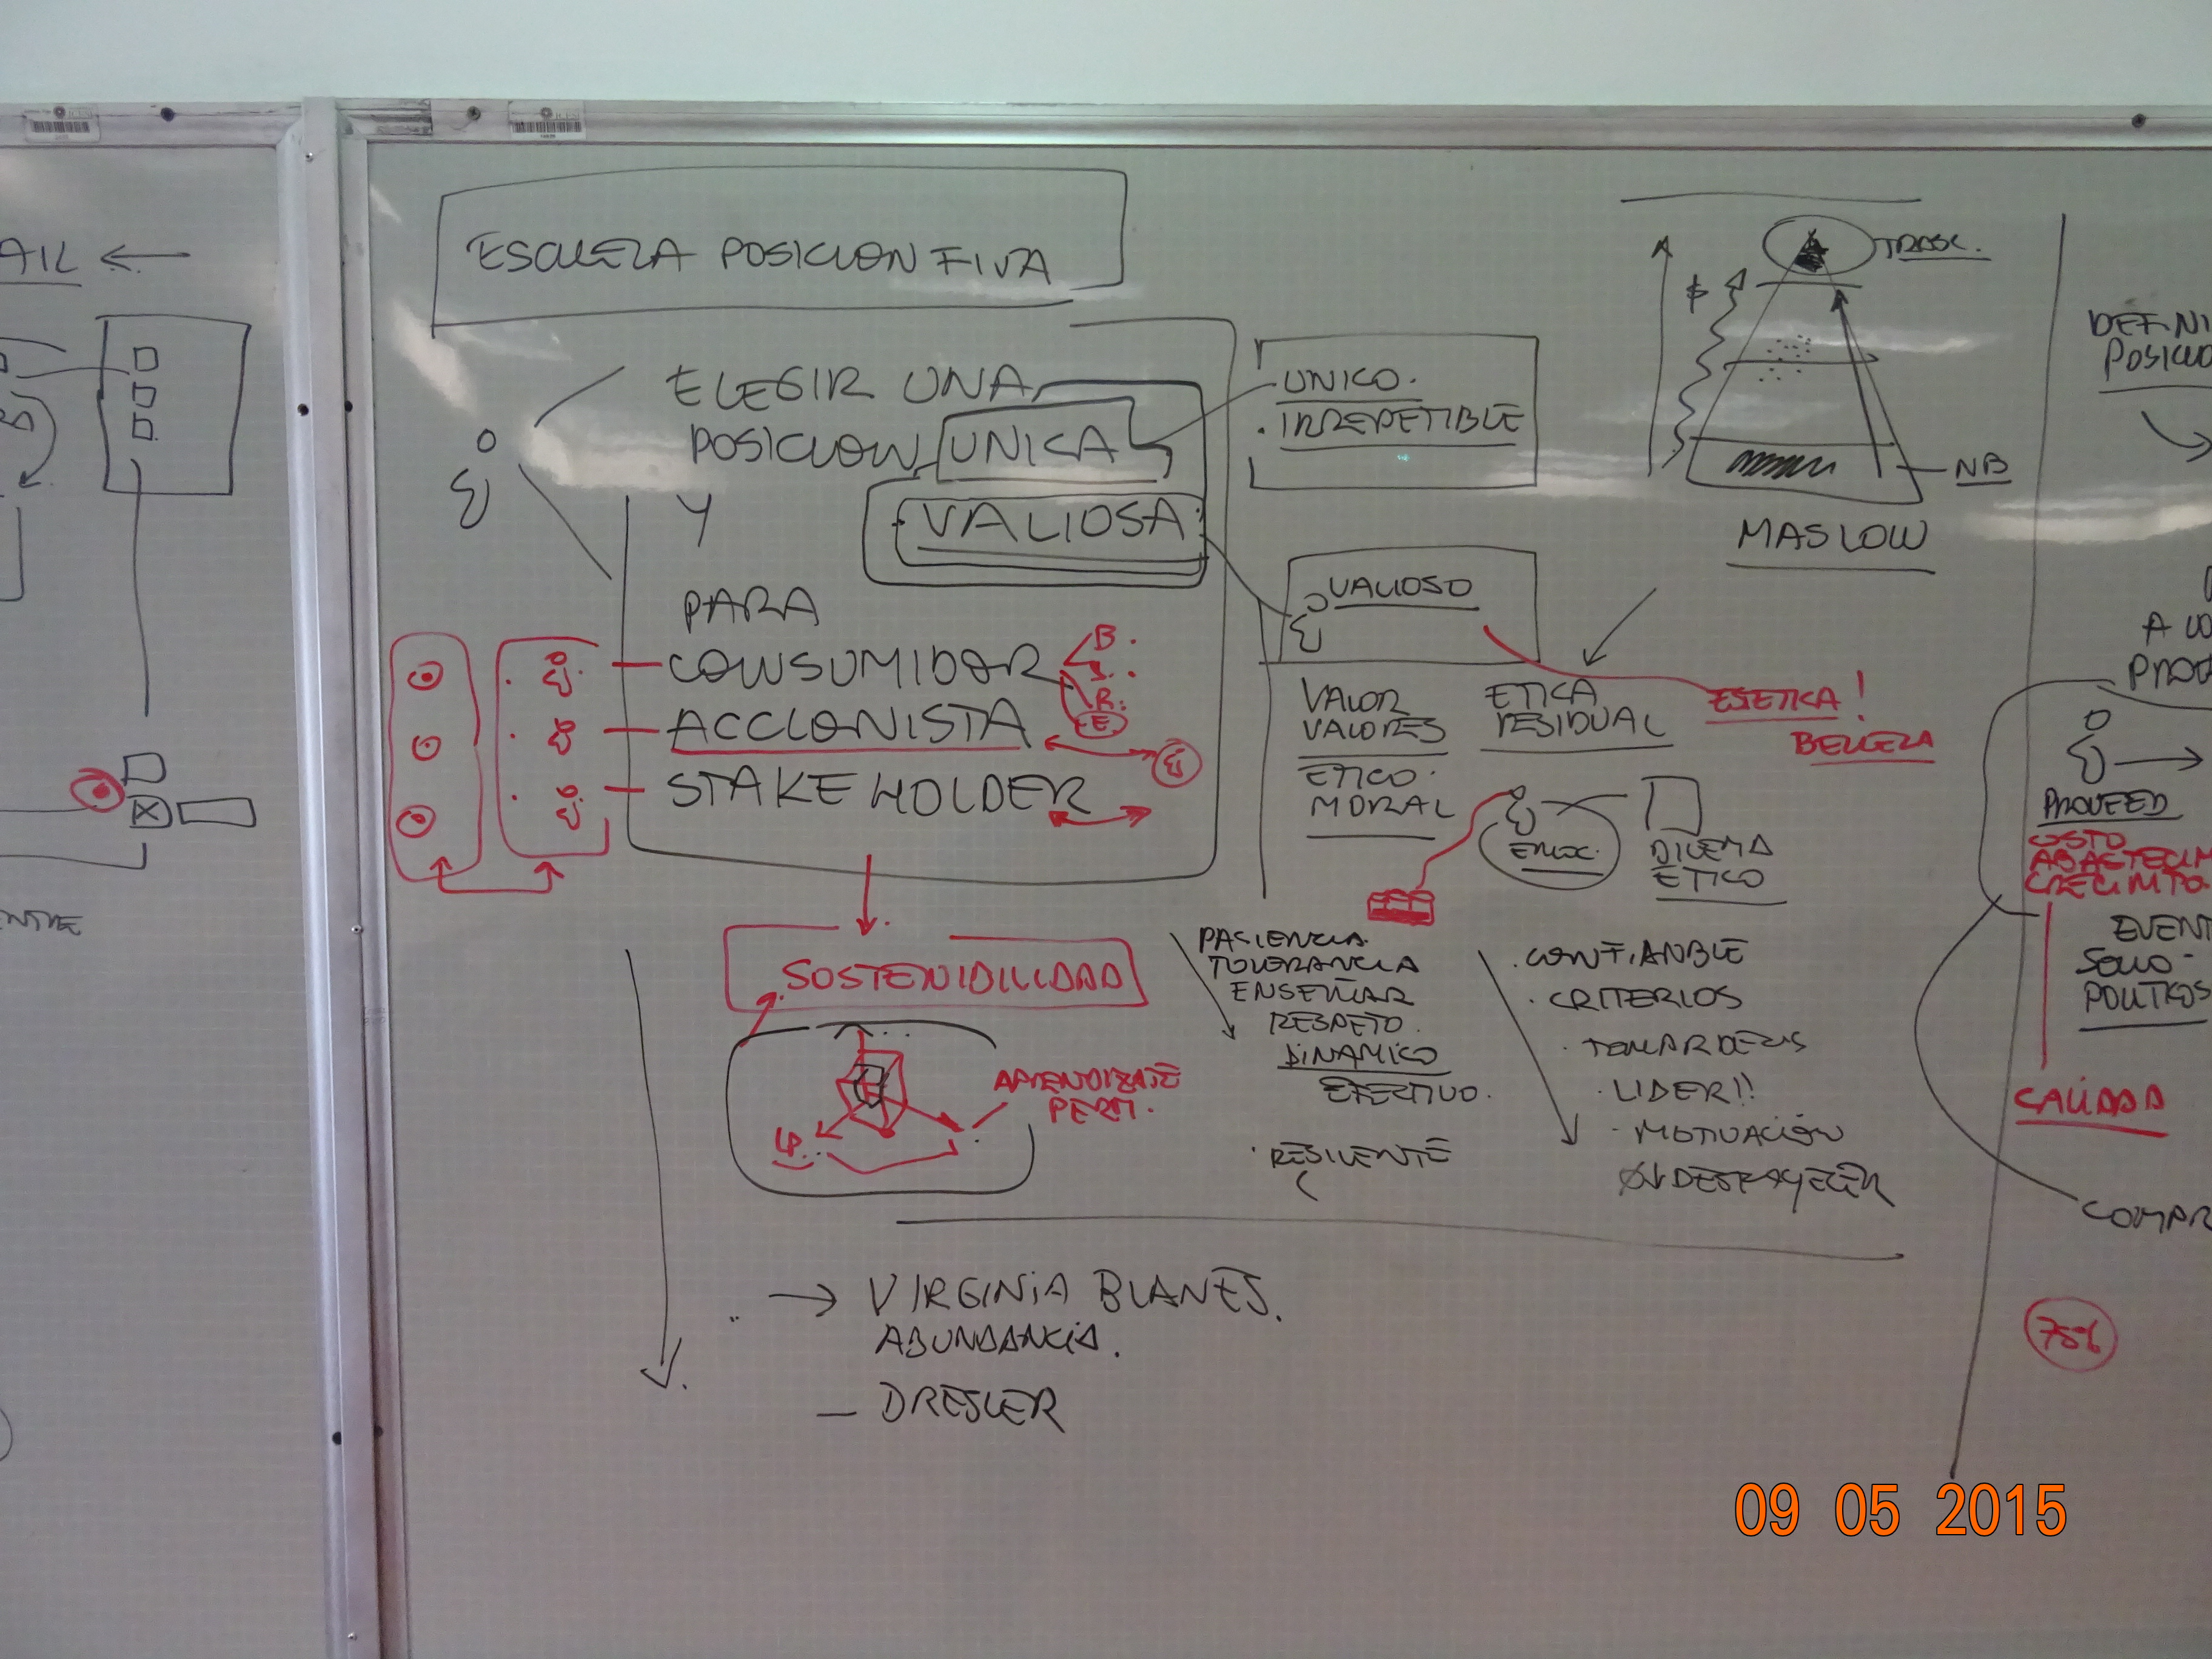 AIL
ESCUELA POSICION FIVA
ELEGIR UNA
POSICION UNICA
Y VALIOSA
PARA
CONSUMIDOR
B.
S..
R.
E
ACCIONISTA
STAKE HOLDER
SOSTENIBILIDAD
APRENDIZAJE
PERM.
LP..
UNICO.
. IRREPETIBLE
VALIOSO
VALOR
VALORES
ETICO.
MORAL
ETICA
RESIDUAL
ESTETICA!
BELLEZA
EMOC.
DILEMA
ETICO
PACIENCIA
TOLERANCIA
ENSEÑAR
RESPETO.
DINAMICO
EFECTIVO.
. RESILENTE
. CONFIANBLE
. CRITERIOS
. TOMAR DECIS
. LIDER!!
. MOTIVACIÓN
DESFAYECER
VIRGINIA BLANES.
ABUNDANCIA.
— DRESLER
TRASC.
$
NB
MASLOW
DEFINI
POSICIO
PROVEED
COSTO
ABASTECIM
CRECIMTO
EVENT
SOCIO-
POLITICOS
CALIDAD
COMPR
75%
09 05 2015